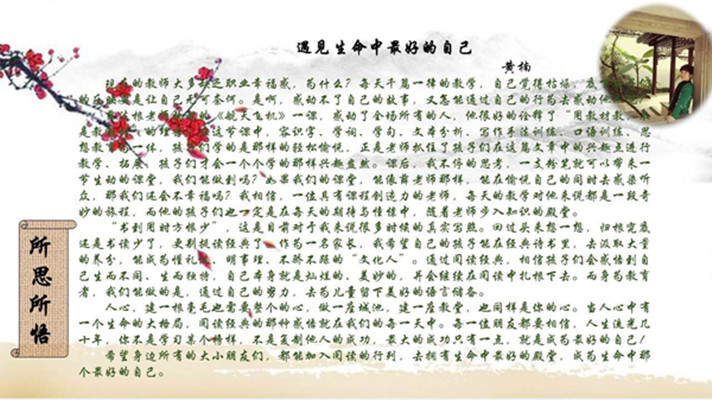 遇见生命中最好的自己
黄楠
现在的教师大多缺乏职业幸福感，为什么？每天千篇一律的教学，自己觉得枯燥
的压力更是让自己无可奈何。是啊，感动不了自己的故事，又怎能通过自己的行为去感动他
老师的《航天飞机》一课，感动了全场所有的人，他很好的诠释了“用教材教
是教教材”的理念。这节课中，识字词、学词、学句、文本分析、写作手法训练、口语训练、思
想教育一体，学生们学的是那样的轻松愉悦，正是老师抓住了孩子们在这篇文章中的兴趣点进行
教学、拓展，孩子们才会一个个学的那样兴趣盎然。课后，我不停的思考，一支粉笔就可以带来一
节生动的课堂，我们能做到吗？如果我们的课堂，能像薛老师那样，能在愉悦自己的同时去感染听
众，那我们还会不幸福吗？我相信，一位具有课程创造力的老师，每天的教学对他来说都是一段奇
妙的旅程，而他的孩子们也一定是在每天的期待与憧憬中，随着老师步入知识的殿堂。
“书到用时方恨少”，这是目前对于我来说很多时候的真实写照。回过头来想一想，归根究底
还是书读少了，更别提读经典了。作为一名家长，我希望自己的孩子能在经典诗书里，去汲取大量
的养分，能成为懂礼仪、明事理、不骄不躁的“文化人”。通过阅读经典，相信孩子们会感悟到自
己生而不同、生而独特，自己本身就是灿烂的、美妙的，并会继续在阅读中扎根下去。而身为教育
者，我们能做的是，通过自己的努力，去为儿童留下美好的语言储备。
人心，建一根毫毛也需要整个的心，做一座城池，建一座教堂，也同样是你的心。当人心中有
一个生命的大格局，阅读经典的那种感悟就在我们的每一天中。每一位朋友都要相信，人生流光几
十年，你不是学习某个榜样，不是复制他人的成功，最大的成功只有一点，就是成为最好的自己！
希望身边所有的大小朋友们，都能加入阅读的行列，去拥有生命中最好的殿堂，成为生命中那
个最好的自己。
所思所悟